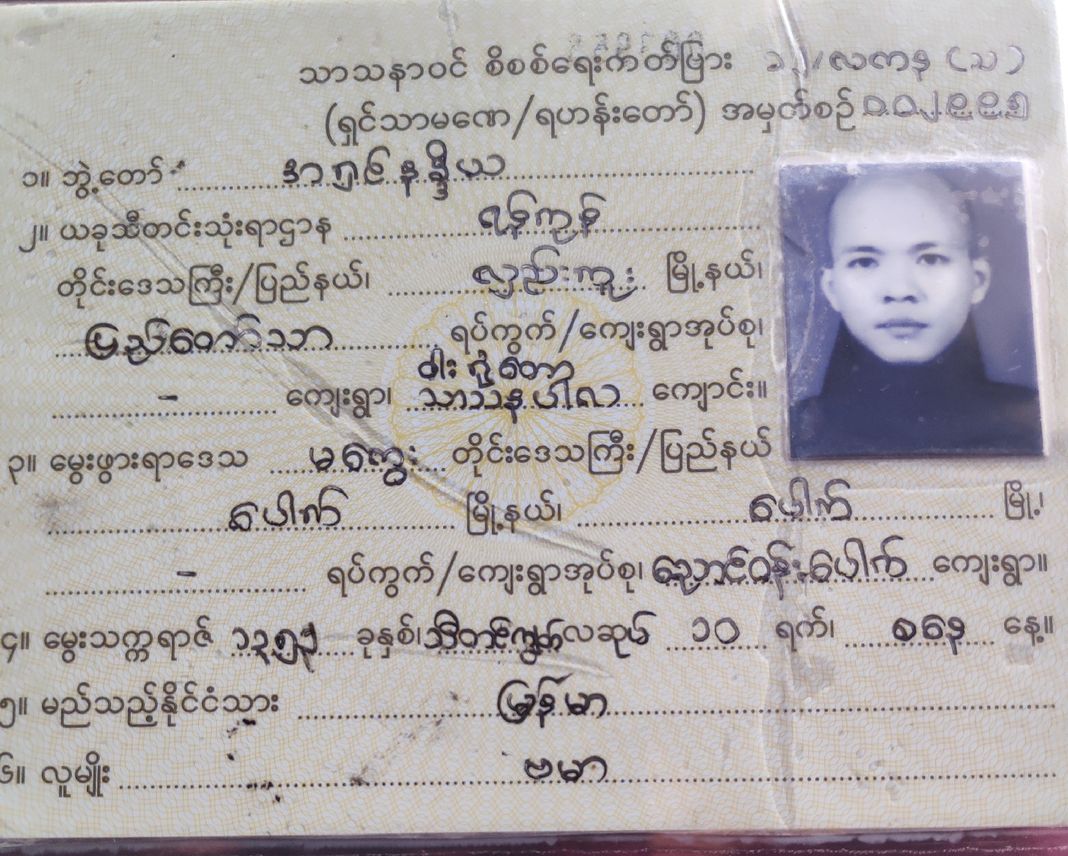 သာသနာဝင် စိစစ်ရေးကတ်ပြား ၁၃/လကန (သ)
(ရှင်သာမဏေ/ရဟန်းတော်) အမှတ်စဉ်
၁။ ဘွဲ့တော်
၂။ ယခုသီတင်းသုံးရာဌာန ရန်ကုန်
တိုင်းဒေသကြီး/ပြည်နယ်၊ လှည်းကူး မြို့နယ်၊
ပြည်တော်သာ ရပ်ကွက်/ကျေးရွာအုပ်စု၊
ဝါးရုံတော
- ကျေးရွာ၊ သာသနပါလ ကျောင်း။
၃။ မွေးဖွားရာဒေသ မကွေး တိုင်းဒေသကြီး/ပြည်နယ်
ပေါက် မြို့နယ်၊ ပေါက် မြို့၊
- ရပ်ကွက်/ကျေးရွာအုပ်စု၊ ညောင်ဝန်းပေါက် ကျေးရွာ။
၄။ မွေးသက္ကရာဇ် ၁၃၅၃ ခုနှစ်၊ သီတင်းကျွတ်လဆုတ် ၁၀ ရက်၊ စနေ နေ့။
၅။ မည်သည့်နိုင်ငံသား မြန်မာ
၆။ လူမျိုး ဗမာ